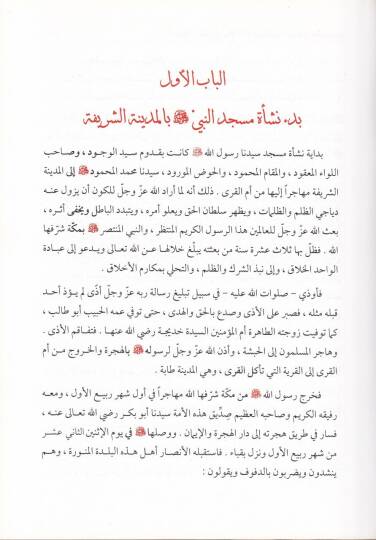 الباب الأول
بدء نشأة مسجد النبي ﷺ بالمدينة الشريفة
بداية نشأة مسجد سيدنا رسول الله ﷺ كانت بقدوم سيد الوجود ، وصاحب
اللواء المعقود ، والمقام المحمود ، والحوض المورود ، سيدنا محمد المحمود ﷺ إلى المدينة
الشريفة مهاجراً إليها من أم القرى . ذلك أنه لما أراد الله عزّ وجلّ للكون أن يزول عنه
دياجي الظلم والظلمات ، ويظهر سلطان الحق ويعلو أمره ، ويتبدد الباطل ويخفى أثره ،
بعث الله عزّ وجلّ للعالمين هذا الرسول الكريم المنتظر ، والنبي المنتصر ﷺ بمكة شرّفها
الله . فظلّ بها ثلاث عشرة سنة من بعثته يبلّغ خلالها عن الله تعالى ويدعو إلى عبادة
الواحد الخلاق ، وإلى نبذ الشرك والظلم ، والتحلي بمكارم الأخلاق .
فأوذي - صلوات الله عليه - في سبيل تبليغ رسالة ربه عزّ وجلّ أذًى لم يؤذ أحد
قبله مثله ، فصبر على الأذى وصدع بالحق والهدى ، حتى توفي عمه الحبيب أبو طالب ،
كما توفيت زوجته الطاهرة أم المؤمنين السيدة خديجة رضي الله عنها . فتفاقم الأذى .
وهاجر المسلمون إلى الحبشة ، وأذن الله عزّ وجلّ لرسوله ﷺ بالهجرة والخروج من أم
القرى إلى القرية التي تأكل القرى ، وهي المدينة طابة .
فخرج رسول الله ﷺ من مكّة شرّفها الله مهاجراً في أول شهر ربيع الأول ، ومعه
رفيقه الكريم وصاحبه العظيم صدّيق هذه الأمة سيدنا أبو بكر رضي الله تعالى عنه ،
فسار في طريق هجرته إلى دار الهجرة والإيمان . ووصلها ﷺ في يوم الإثنين الثاني عشر
من شهر ربيع الأول ونزل بقباء . فاستقبله الأنصار أهل هذه البلدة المنورة ، وهم
ينشدون ويضربون بالدفوف ويقولون :